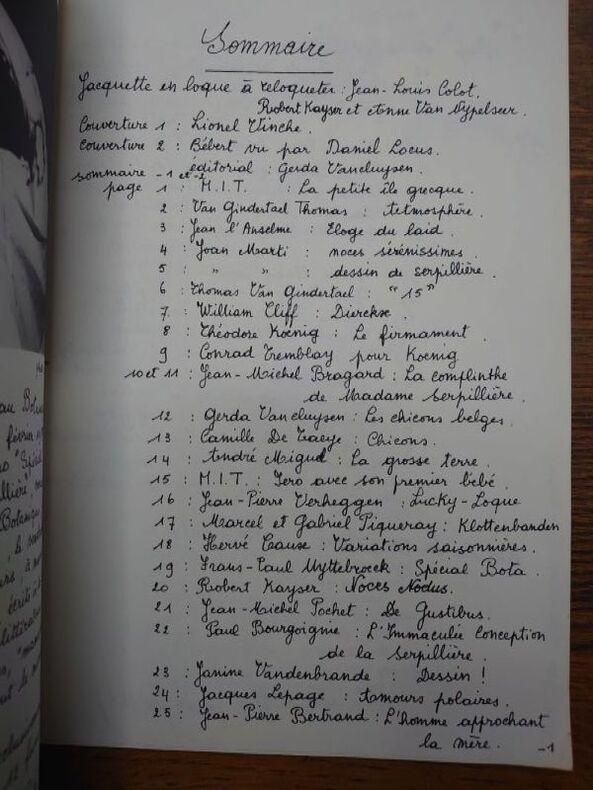 Sommaire
Jacquette en loque à reloqueter : Jean-Louis Colot,
Robert Kayser et Anne Van Nypelseer.
Couverture 1 : Lionel Vinche.
Couverture 2 : Bébert vu par Daniel Locus.
sommaire -1 et -2 éditorial : Gerda Vancluysen.
page 1 : M.I.T. : La petite île grecque.
2 : Van Gindertael Thomas : Atmosphère.
3 : Jean l'Anselme : Eloge du laid.
4 : Joan Marti : noces sérénissimes.
5 : " " : dessin de serpillière.
6 : Thomas Van Gindertael : "15"
7 : William Cliff : Dierckse.
8 : Théodore Koenig : Le firmament.
9 : Conrad Tremblay pour Koenig
10 et 11 : Jean-Michel Bragard : La complinthe
de Madame Serpillière.
12 : Gerda Vancluysen : Les chicons belges.
13 : Camille De Taeye : Chicons.
14 : André Miguel : La grosse terre.
15 : M.I.T. : Jero avec son premier bébé.
16 : Jean-Pierre Verheggen : Lucky-Loque
17 : Marcel et Gabriel Piqueray : Klottenbanden
18 : Hervé Cause : Variations saisonnières.
19 : Frans-Paul Uyttebroeck : Spécial Bota.
20 : Robert Kayser : Noces Nodus.
21 : Jean-Michel Pochet : De Gustibus.
22 : Paul Bourgoignie : L'Immaculée Conception
de la serpillière.
23 : Janine Vandenbrande : Dessin !
24 : Jacques Lepage : Amours polaires.
25 : Jean-Pierre Bertrand : L'homme approchant
la mère.
-1
au Botan
février
llière",
Botanique
écrits
littérat